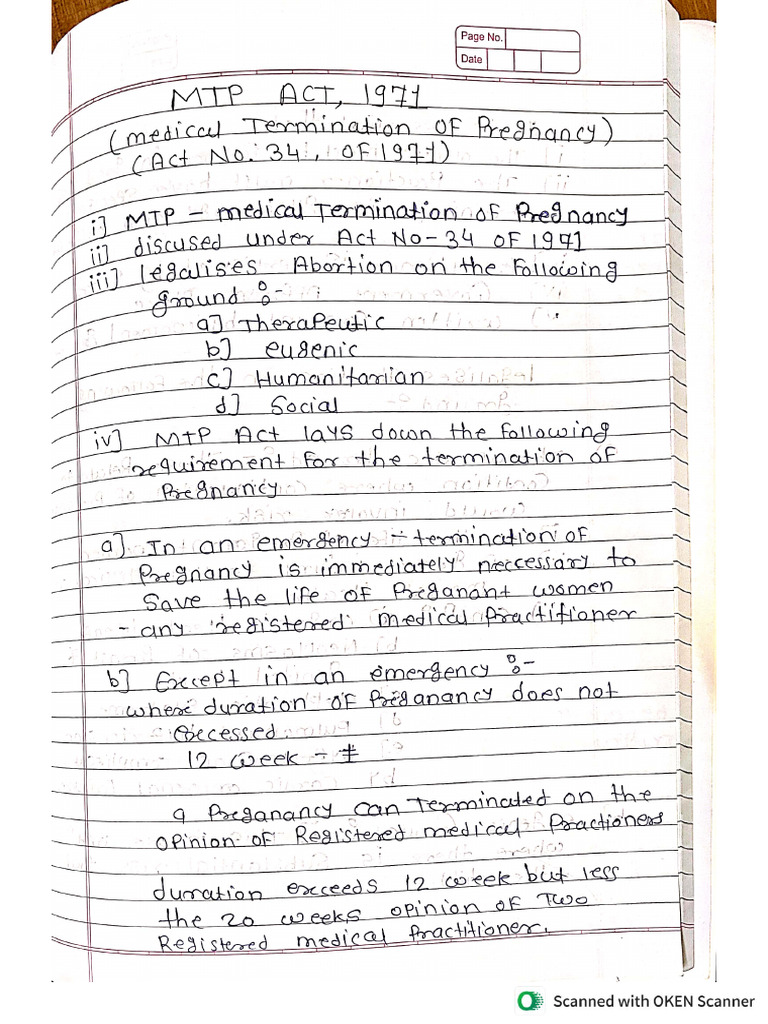 Page No.
Date
MTP ACT, 1971
(medical Termination of Pregnancy)
(Act No. 34, of 1971)
i] MTP - medical Termination of Pregnancy
ii] discused under Act No-34 of 1971
iii] legalises Abortion on the following
ground :-
a] Therapeutic
b] eugenic
c] Humanitarian
d] Social
iv] MTP Act lays down the following
requirement for the termination of
Pregnancy
a] In an emergency - termination of
Pregnancy is immediately neccessary to
Save the life of Preganant women
- any registered medical Practitioner
b] Except in an emergency :-
where duration of Preganancy does not
excessed
12 week -
a Preganancy can Terminated on the
opinion of Registered medical Practioners
duration exceeds 12 week but less
the 20 weeks opinion of Two
Registered medical Practitioner.
Scanned with OKEN Scanner